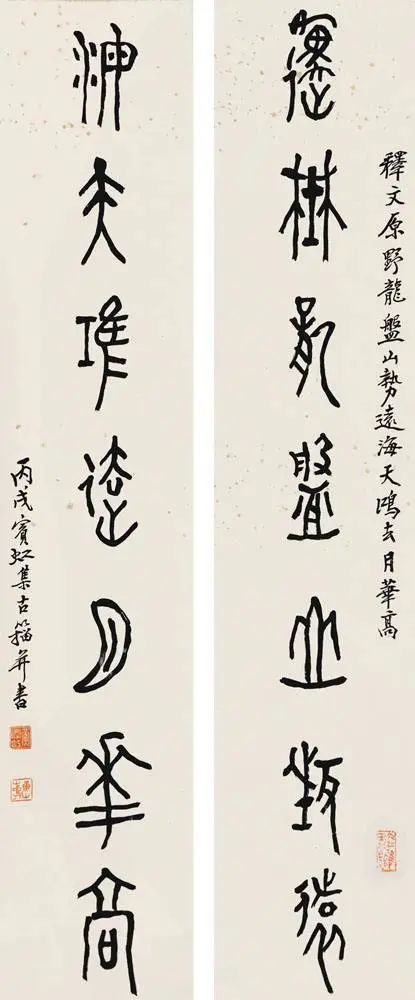 釋文原野龍盤山勢遠海天鴻去月華高
原野龍盤山勢遠
海天鴻去月華高
丙戌賓虹集古籀并書